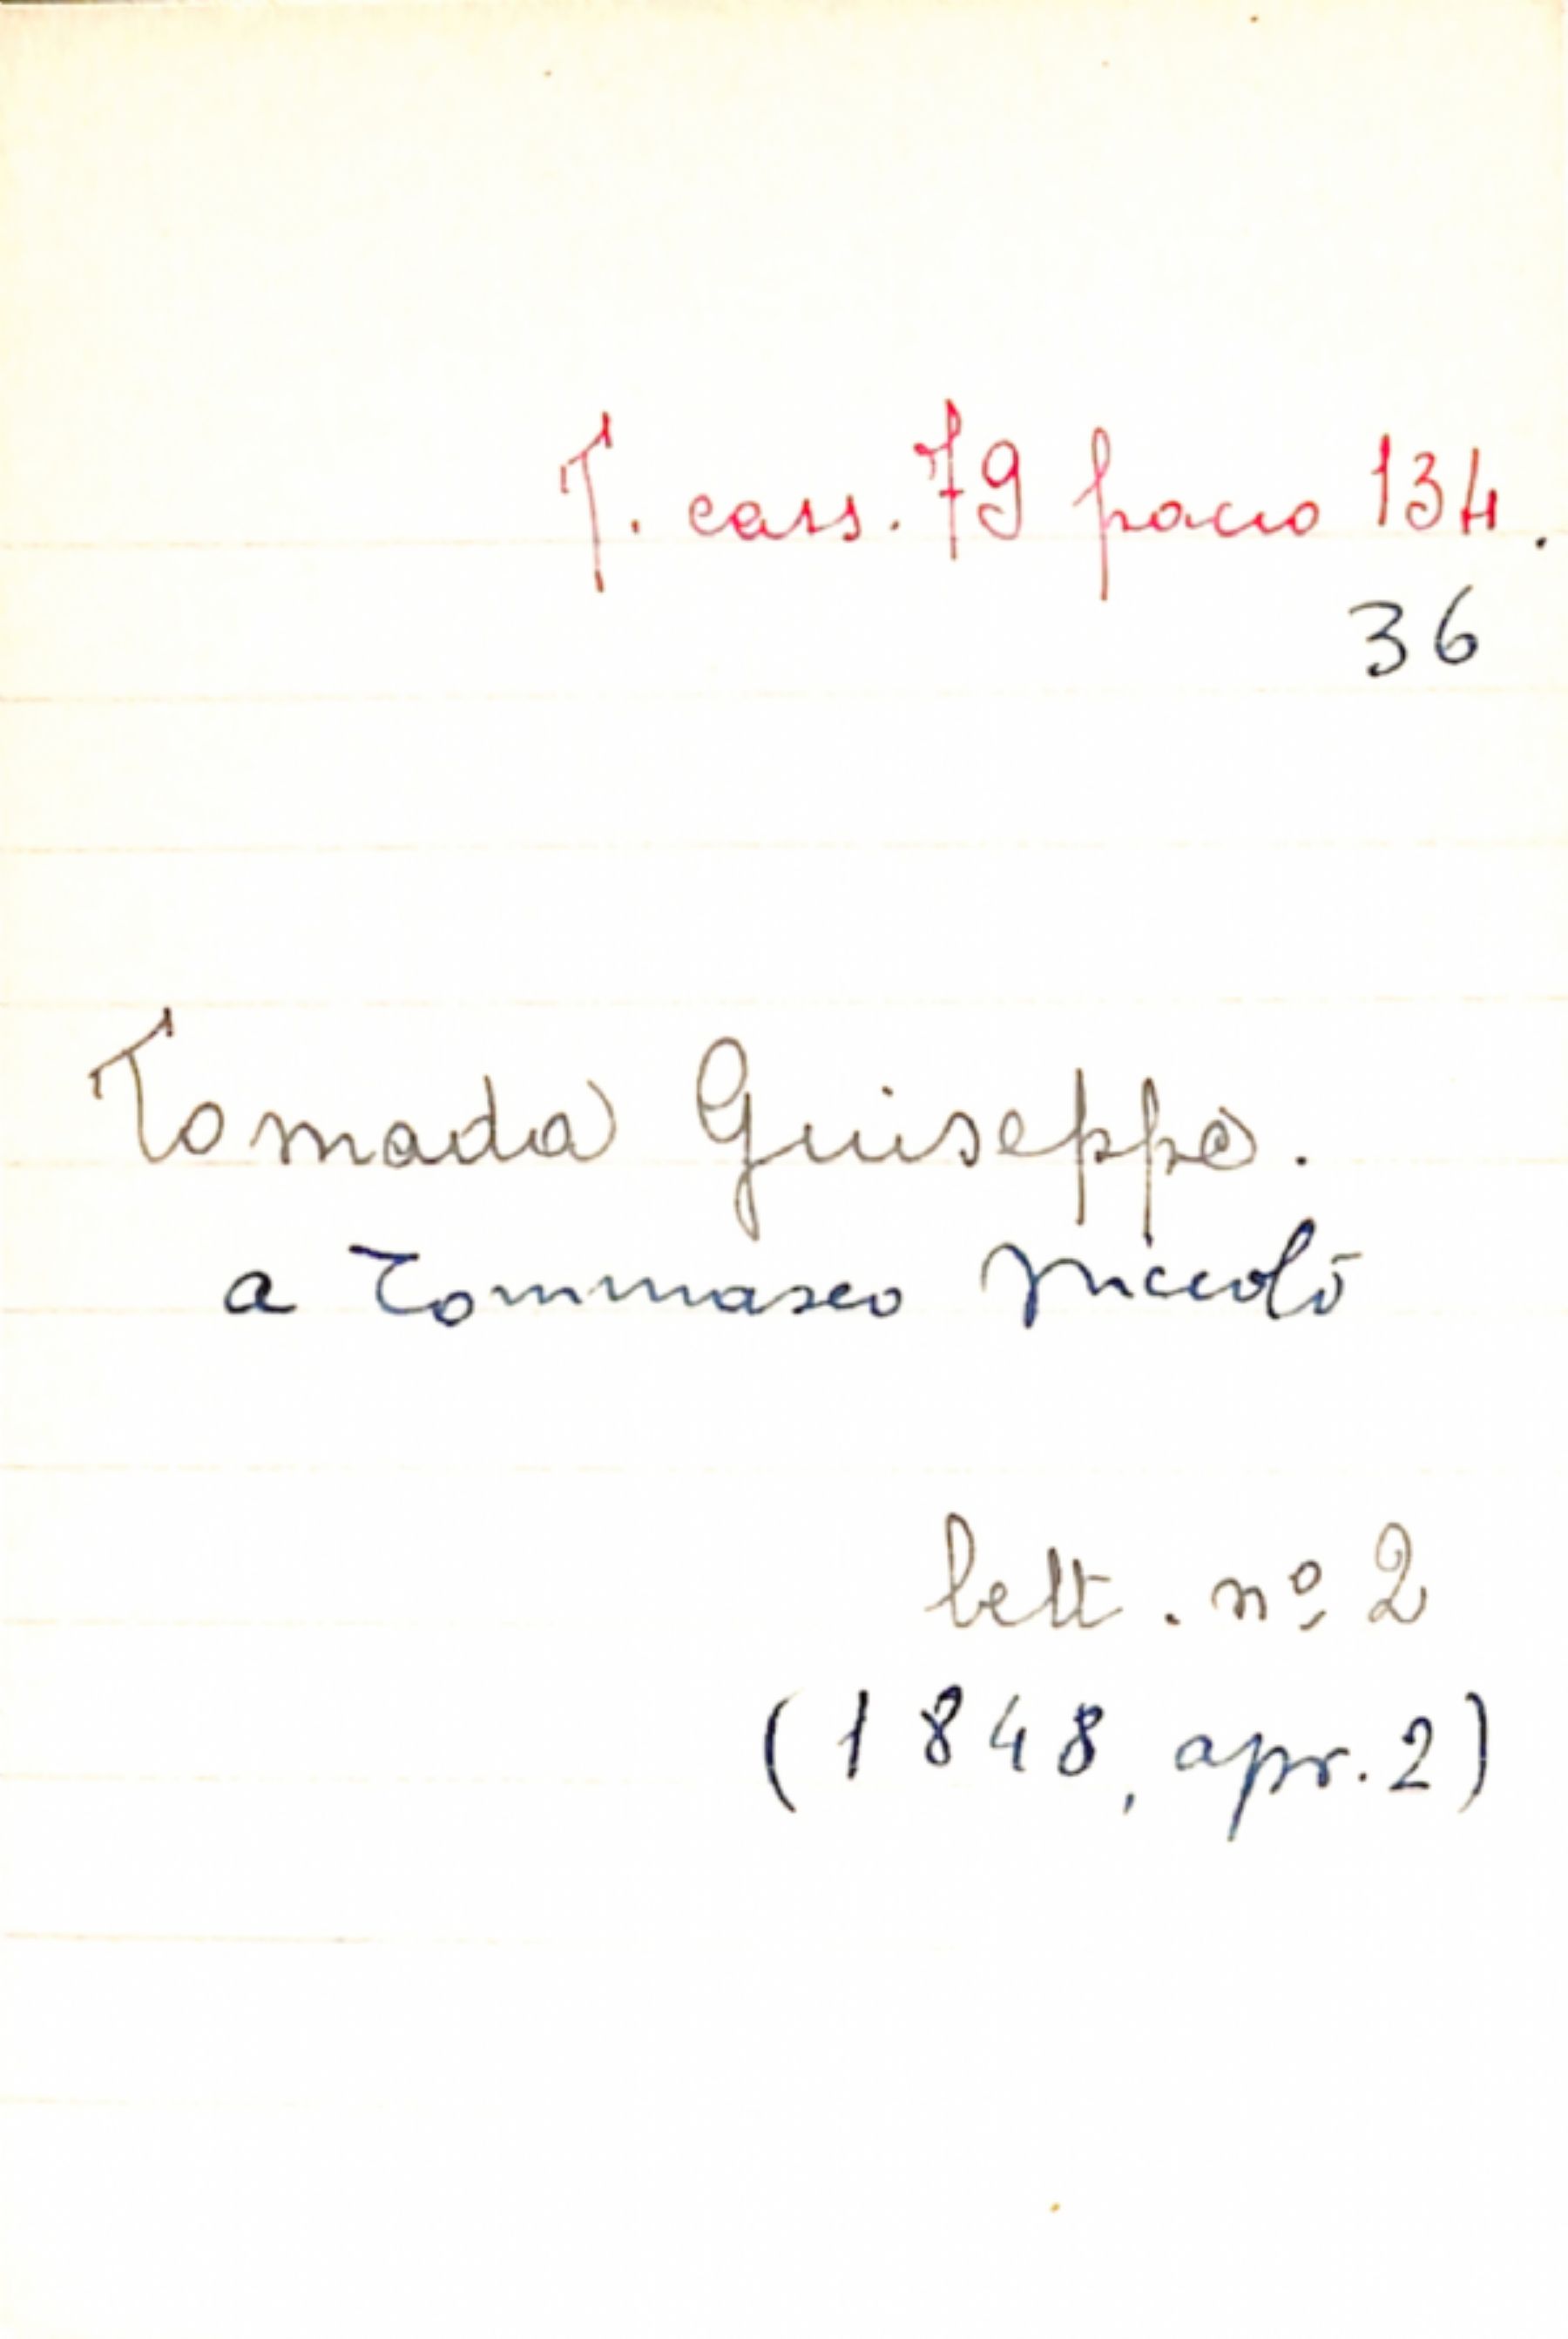 T. cass. 79 pacco 134.
36
Tomada Giuseppe.
a Tommaseo Niccolò
lett. nº 2
(1848, apr. 2)